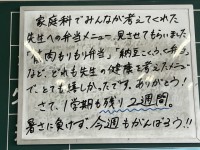 家庭科でみんなが考えてくれた
先生への弁当メニュー、見させてもらいました
「肉もりもり弁当」「納豆こくう(弁当)
など、どれも先生の健康を考えたメニュー
で、とても嬉しかったです。ありがとう!
さて、1学期も残り2週間。
暑さに負けず今週もがんばろう!!